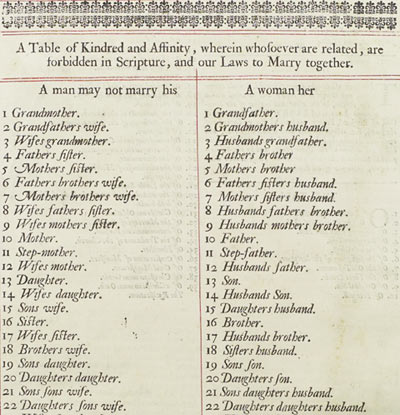 A Table of Kindred and Affinity, wherein whoſoever are related, are
forbidden in Scripture, and our Laws to Marry together.
A man may not marry his
1 Grandmother.
2 Grandfathers wife.
3 Wifes grandmother.
4 Fathers ſiſter.
5 Mothers ſiſter.
6 Fathers brothers wife.
7 Mothers brothers wife.
8 Wifes fathers ſiſter.
9 Wifes mothers ſiſter.
10 Mother.
11 Step-mother.
12 Wifes mother.
13 Daughter.
14 Wifes daughter.
15 Sons wife.
16 Siſter.
17 Wifes ſiſter.
18 Brothers wife.
19 Sons daughter.
20 Daughters daughter.
21 Sons ſons wife.
22 Daughters ſons wife.
A woman her
1 Grandfather.
2 Grandmothers husband.
3 Husbands grandfather.
4 Fathers brother
5 Mothers brother
6 Fathers ſiſters husband.
7 Mothers ſiſters husband.
8 Husbands fathers brother.
9 Husbands mothers brother.
10 Father.
11 Step-father.
12 Husbands father.
13 Son.
14 Husbands Son.
15 Daughters husband.
16 Brother.
17 Husbands brother.
18 Siſters husband.
19 Sons ſon.
20 Daughters ſon.
21 Sons daughters husband.
22 Daughters daughters husband.